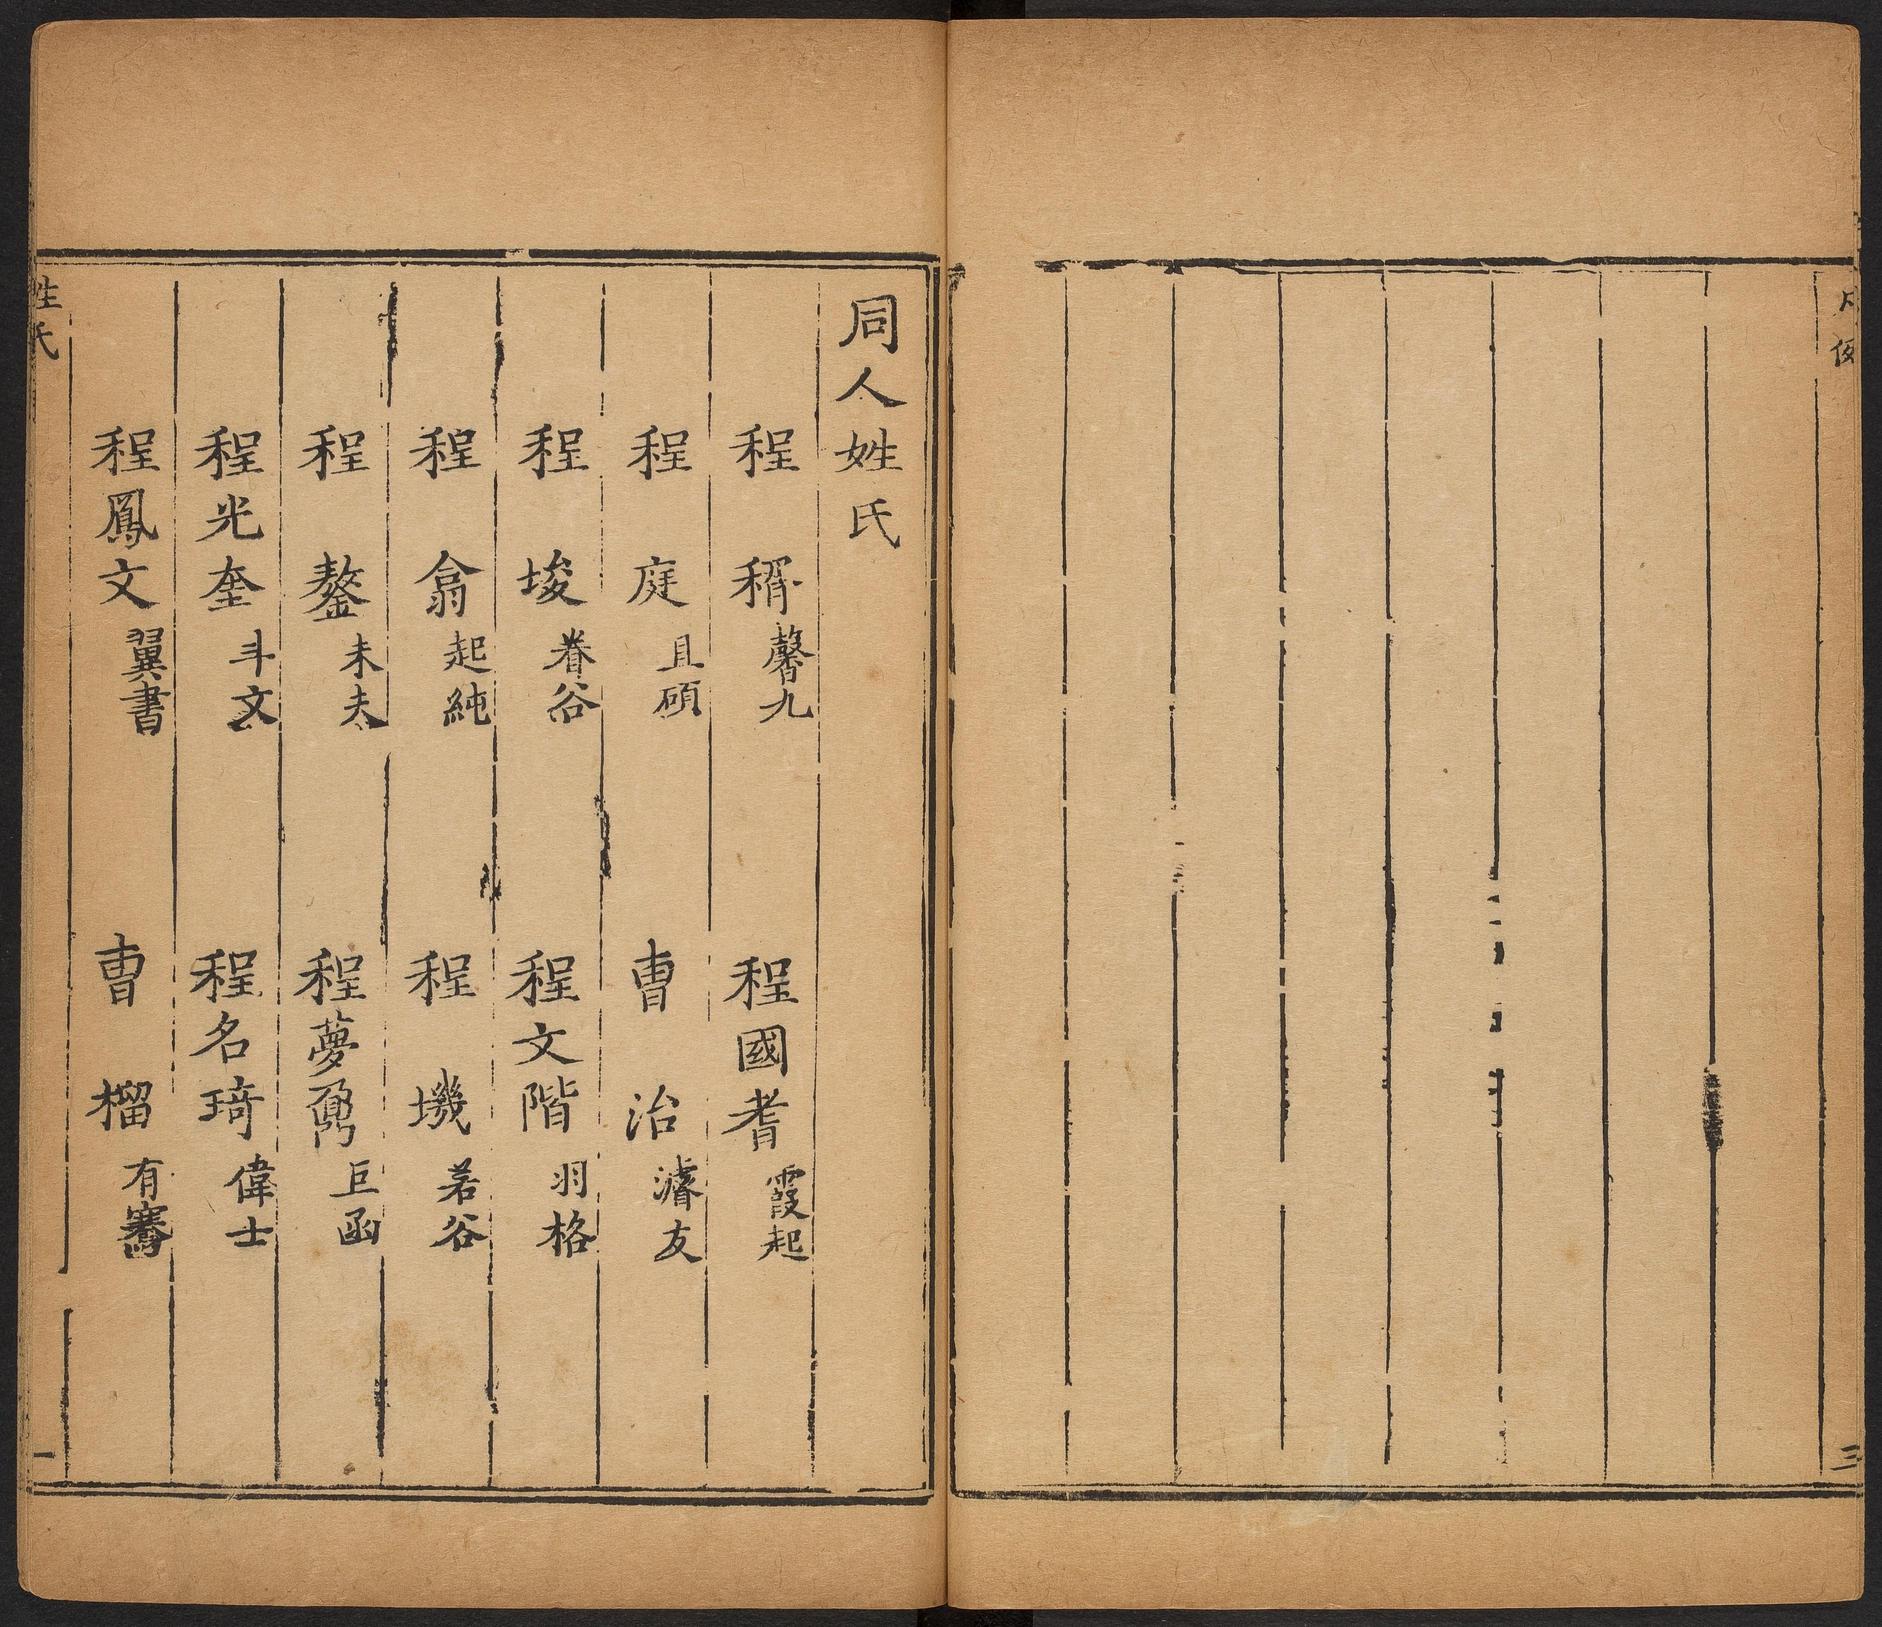 三
同人姓氏
程 稰 馨九 程國耆 霞起
程 庭 且碩 曹 治 濬友
程 埈 眷谷 程文階 羽格
程 翕 起純 程 墢 若谷
程 鏊 未夫 程夢 巨函
程光奎 斗文 程名琦 偉士
程鳳文 翼書 曹 榴 有騫
姓氏
一